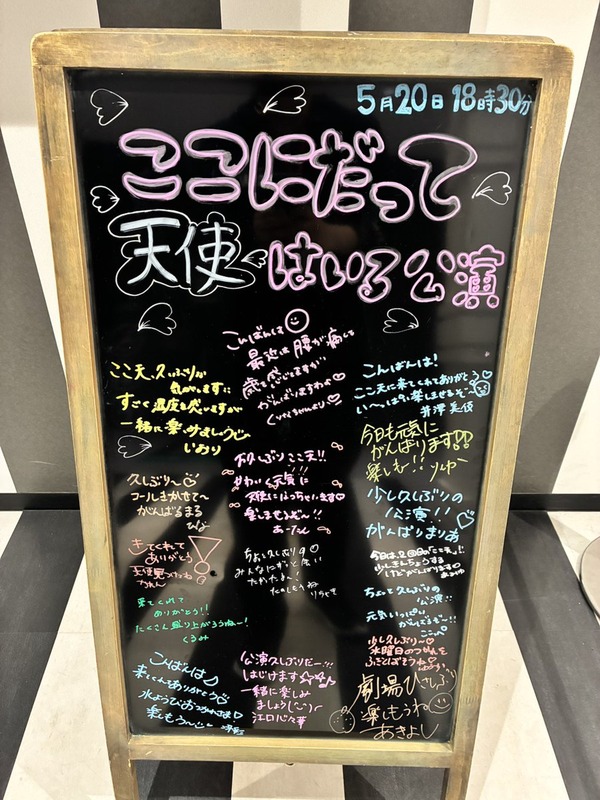 5月20日 18時30分
ここにだって
天使はいる公演
こんばんは
最近は腰が痛くて
歳を感じますが
がんばりますわよ♡
ここ天、久しぶりな
気がします!!
すごく温度を感じますが
一緒に楽しみましょう
しおり
こんばんは!
ここ天に来てくれてありがとう♡
い〜っぱい楽しませるぞ〜
井澤美優
今日も元気に
がんばります!!
楽しむ!!りゅー
久しぶり〜♡
コールきかせて〜
がんばるまる
ひな
久しぶりここ天!!
天使になっちゃいます♡
楽しませるぞ〜!!
あーたん
少し久しぶりの
公演!!
がんばりまりあ
きてくれて
ありがとう!
天使見つけてね
ちょっと久しぶり
みんなにずっと会い
たかったよ!
たのしもうね
りちぇ
今日は2回目の「ここ天」!!
少しきんちょうする
けどがんばります
ちょっと久しぶりの
公演!!
元気いっぱい
がんばるぞー!!
来てくれて
ありがとう!!
たくさん盛り上がろうねー!
くるみ
少し久しぶり〜♡
水曜日のつかれを
ふきとばそうね♡
こんばんは♪
来てくれてありがとう♡
水ようびおつかれさま♡
楽しもう〜
公演久しぶりだー!!!
はじけます☆☆
一緒に楽しみ
ましょう
江口心々華
劇場ひさしぶり
楽しもうね
あきよし